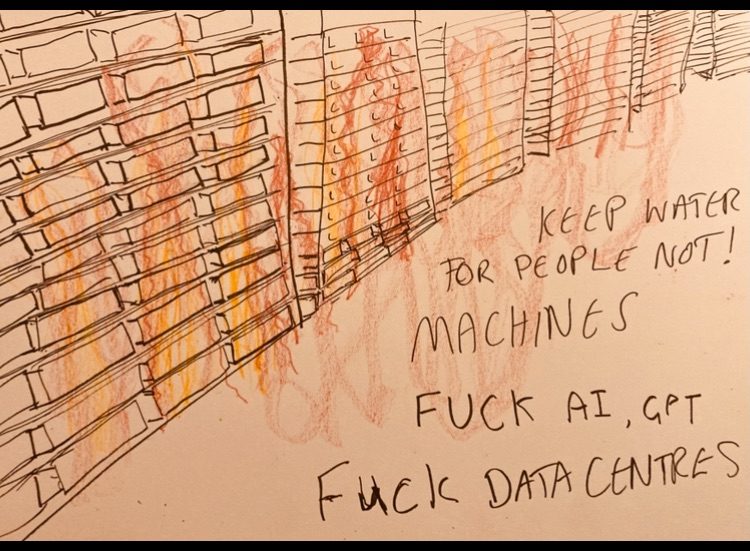 KEEP WATER
FOR PEOPLE NOT!
MACHINES
FUCK AI, GPT
FUCK DATA CENTRES